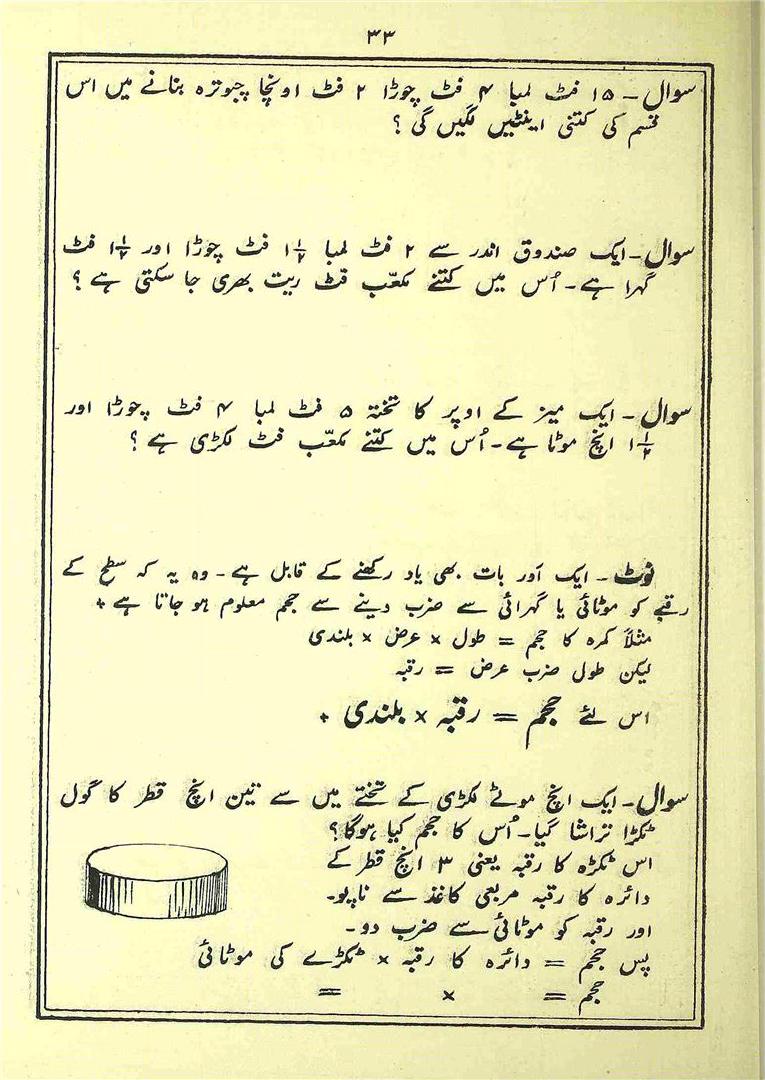 ۳۳
سوال۔ ۱۵ فٹ لمبا ۴ فٹ چوڑا ۲ فٹ اونچا چبوترہ بنانے میں اس
قسم کی کتنی اینٹیں لگیں گی؟
سوال۔ ایک صندوق اندر سے ۲ فٹ لمبا ۱ ۱/۲ فٹ چوڑا اور ۱ ۱/۲ فٹ
گہرا ہے۔ اُس میں کتنے مکعّب فٹ ریت بھری جا سکتی ہے؟
سوال۔ ایک میز کے اوپر کا تختہ ۵ فٹ لمبا ۴ فٹ چوڑا اور
۱ ۱/۲ انچ موٹا ہے۔ اُس میں کتنے مکعّب فٹ لکڑی ہے؟
نوٹ۔ ایک اَور بات بھی یاد رکھنے کے قابل ہے۔ وہ یہ کہ سطح کے
رقبے کو موٹائی یا گہرائی سے ضرب دینے سے حجم معلوم ہو جاتا ہے +
مثلاً کمرہ کا حجم = طول × عرض × بلندی
لیکن طول ضرب عرض = رقبہ
اس لئے حجم = رقبہ × بلندی +
سوال۔ ایک انچ موٹے لکڑی کے تختے میں سے تین انچ قطر کا گول
ٹکڑا تراشا گیا۔ اُس کا حجم کیا ہوگا؟
اس ٹکڑہ کا رقبہ یعنی ۳ انچ قطر کے
دائرہ کا رقبہ مربعی کاغذ سے ناپو۔
اور رقبہ کو موٹائی سے ضرب دو۔
پس حجم = دائرہ کا رقبہ × ٹکڑے کی موٹائی
حجم = × =